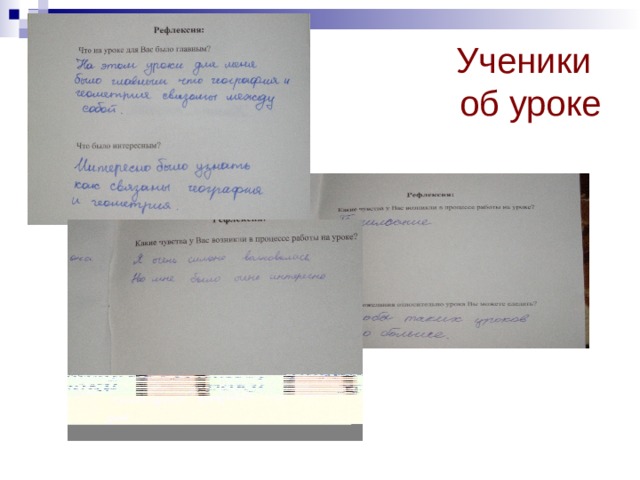 Ученики
об уроке
Рефлексия:
Что на уроке для Вас было главным?
На этом уроки для меня
было главным что география и
геометрия связаны между
собой.
Что было интересным?
Интересно было узнать
как связаны география
и геометрия.
Рефлексия:
Какие чувства у Вас возникли в процессе работы на уроке?
Я очень сильно волновалась
Но мне было очень интересно
Рефлексия:
Какие чувства у Вас возникли в процессе работы на уроке?
относительно урока Вы можете сделать?
таких уроков
больше.